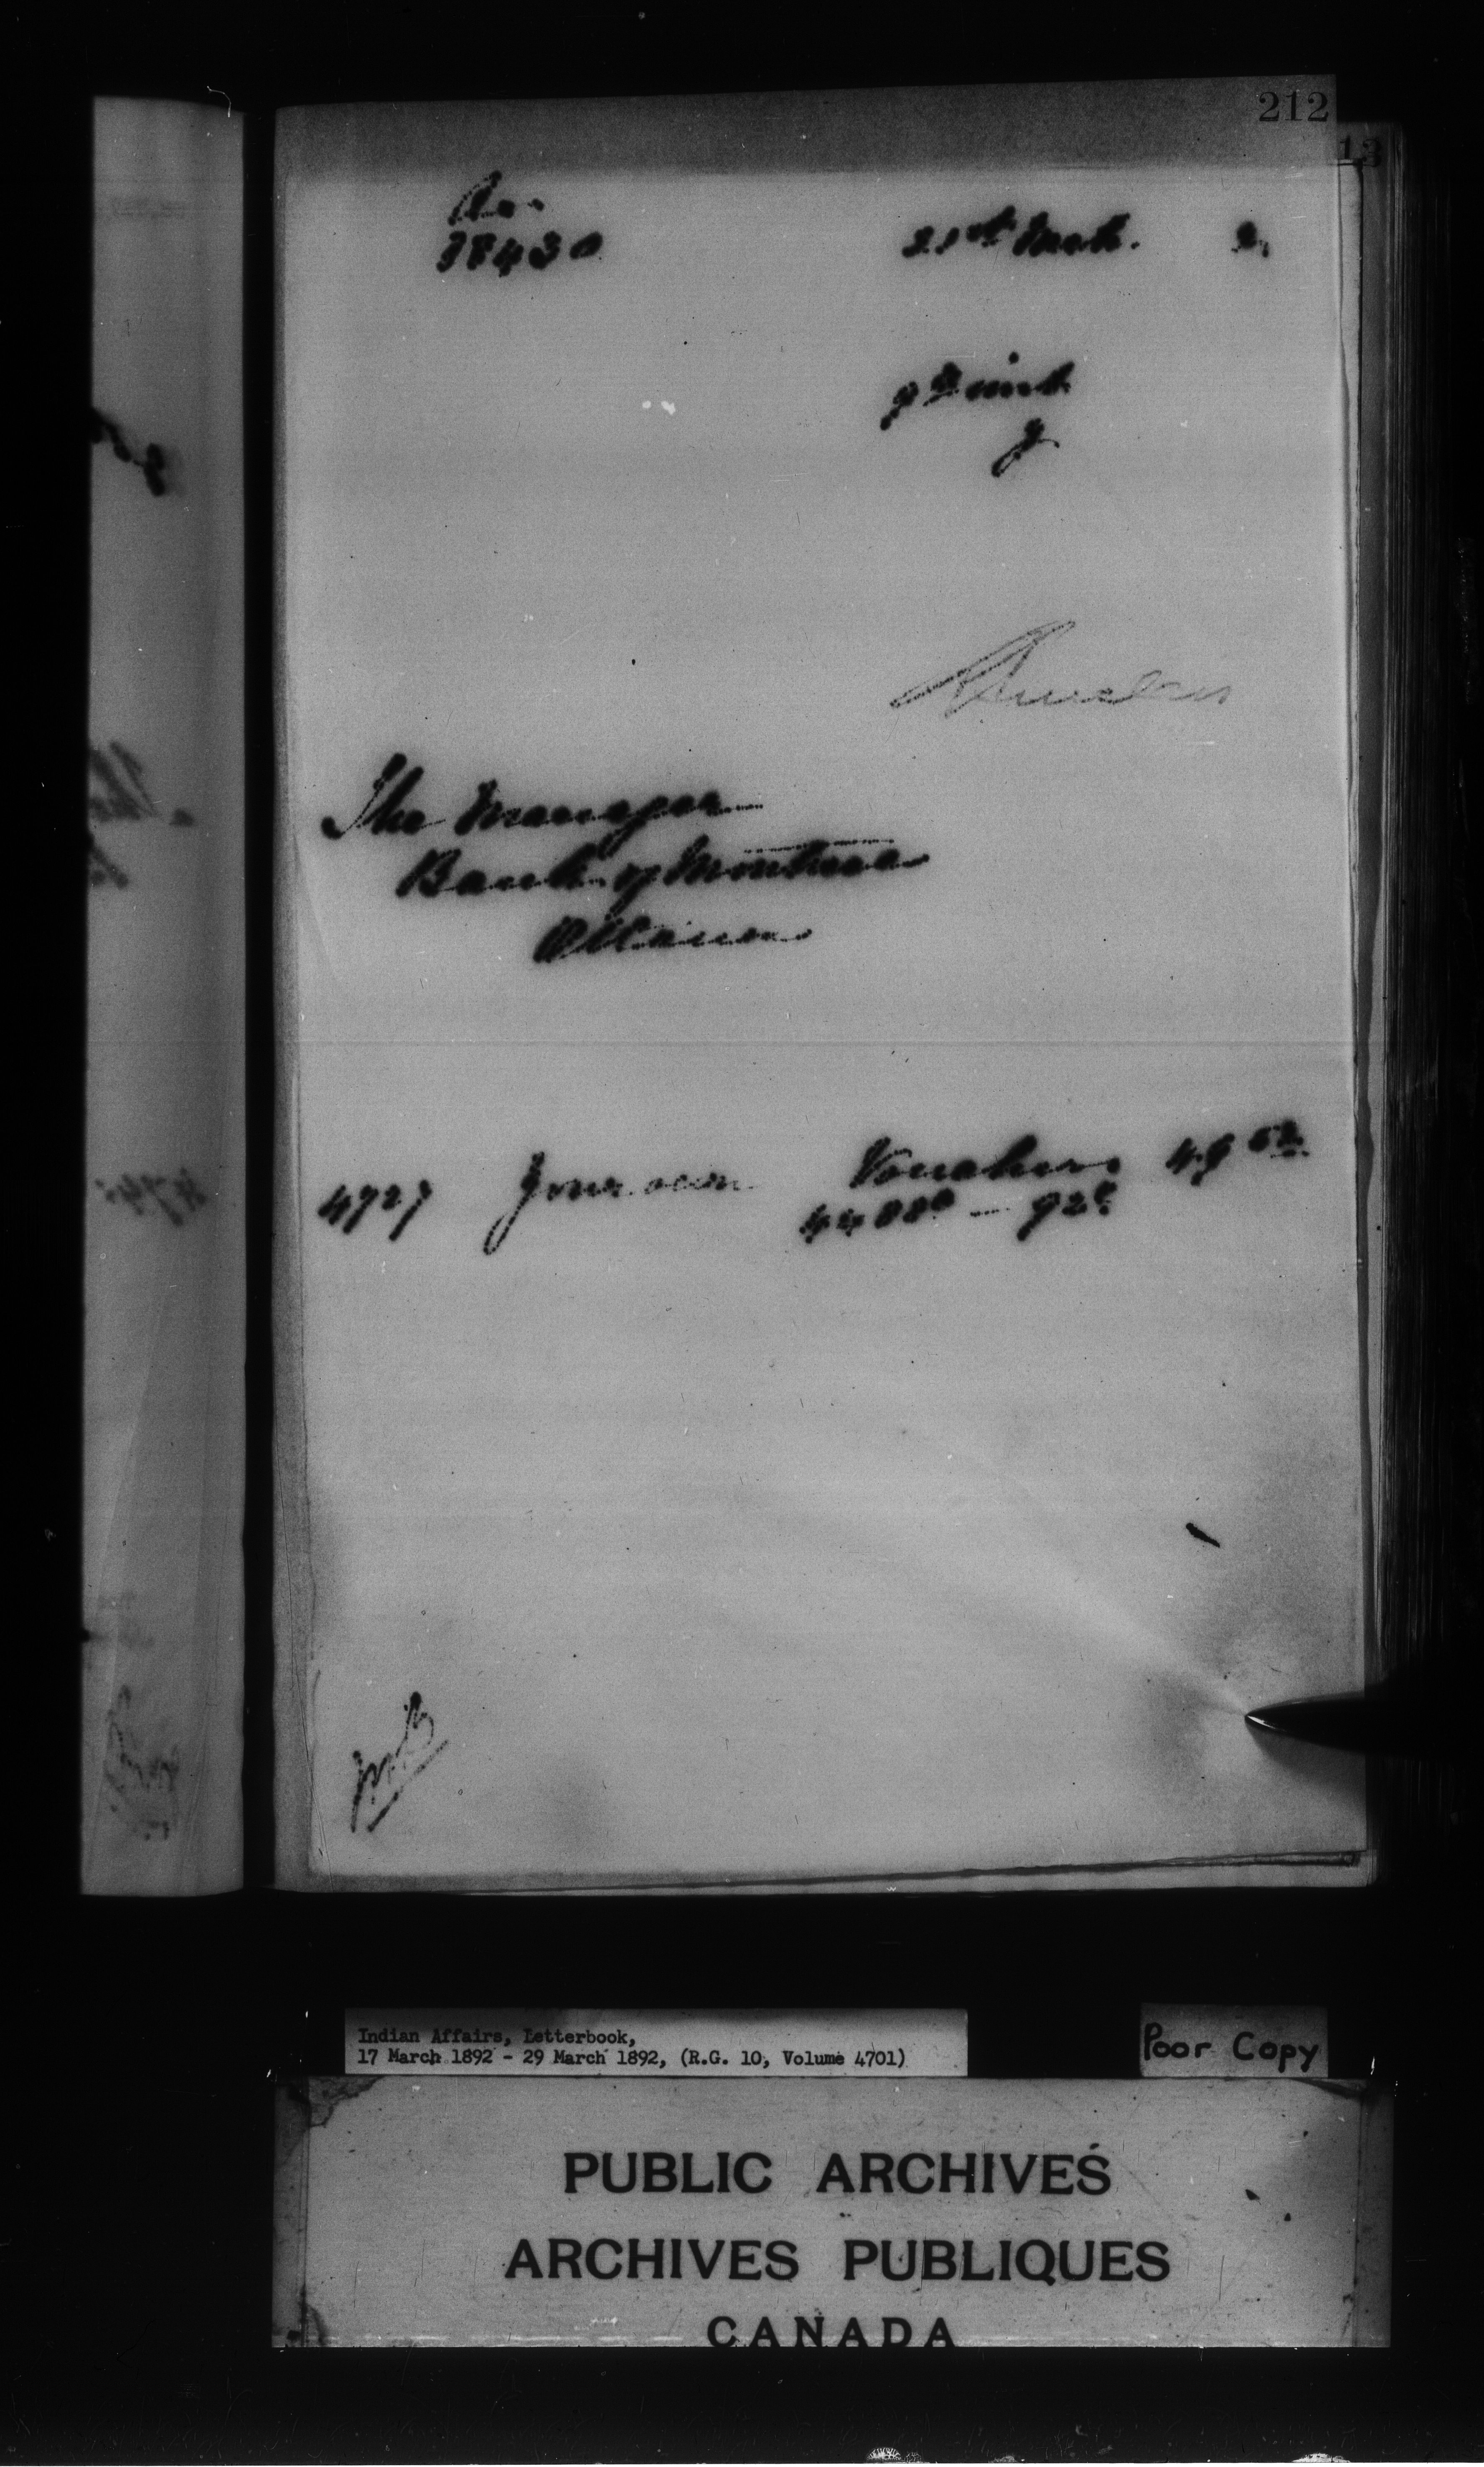 212
13
38430
21st Mch. 2,
9th inst.
The Manager
Bank of Montreal
Ottawa
4727 Your own Vouchers 49 52
92
Indian Affairs, Letterbook,
17 March 1892 - 29 March 1892, (R.G. 10, Volume 4701)
Poor Copy
PUBLIC ARCHIVES
ARCHIVES PUBLIQUES
CANADA